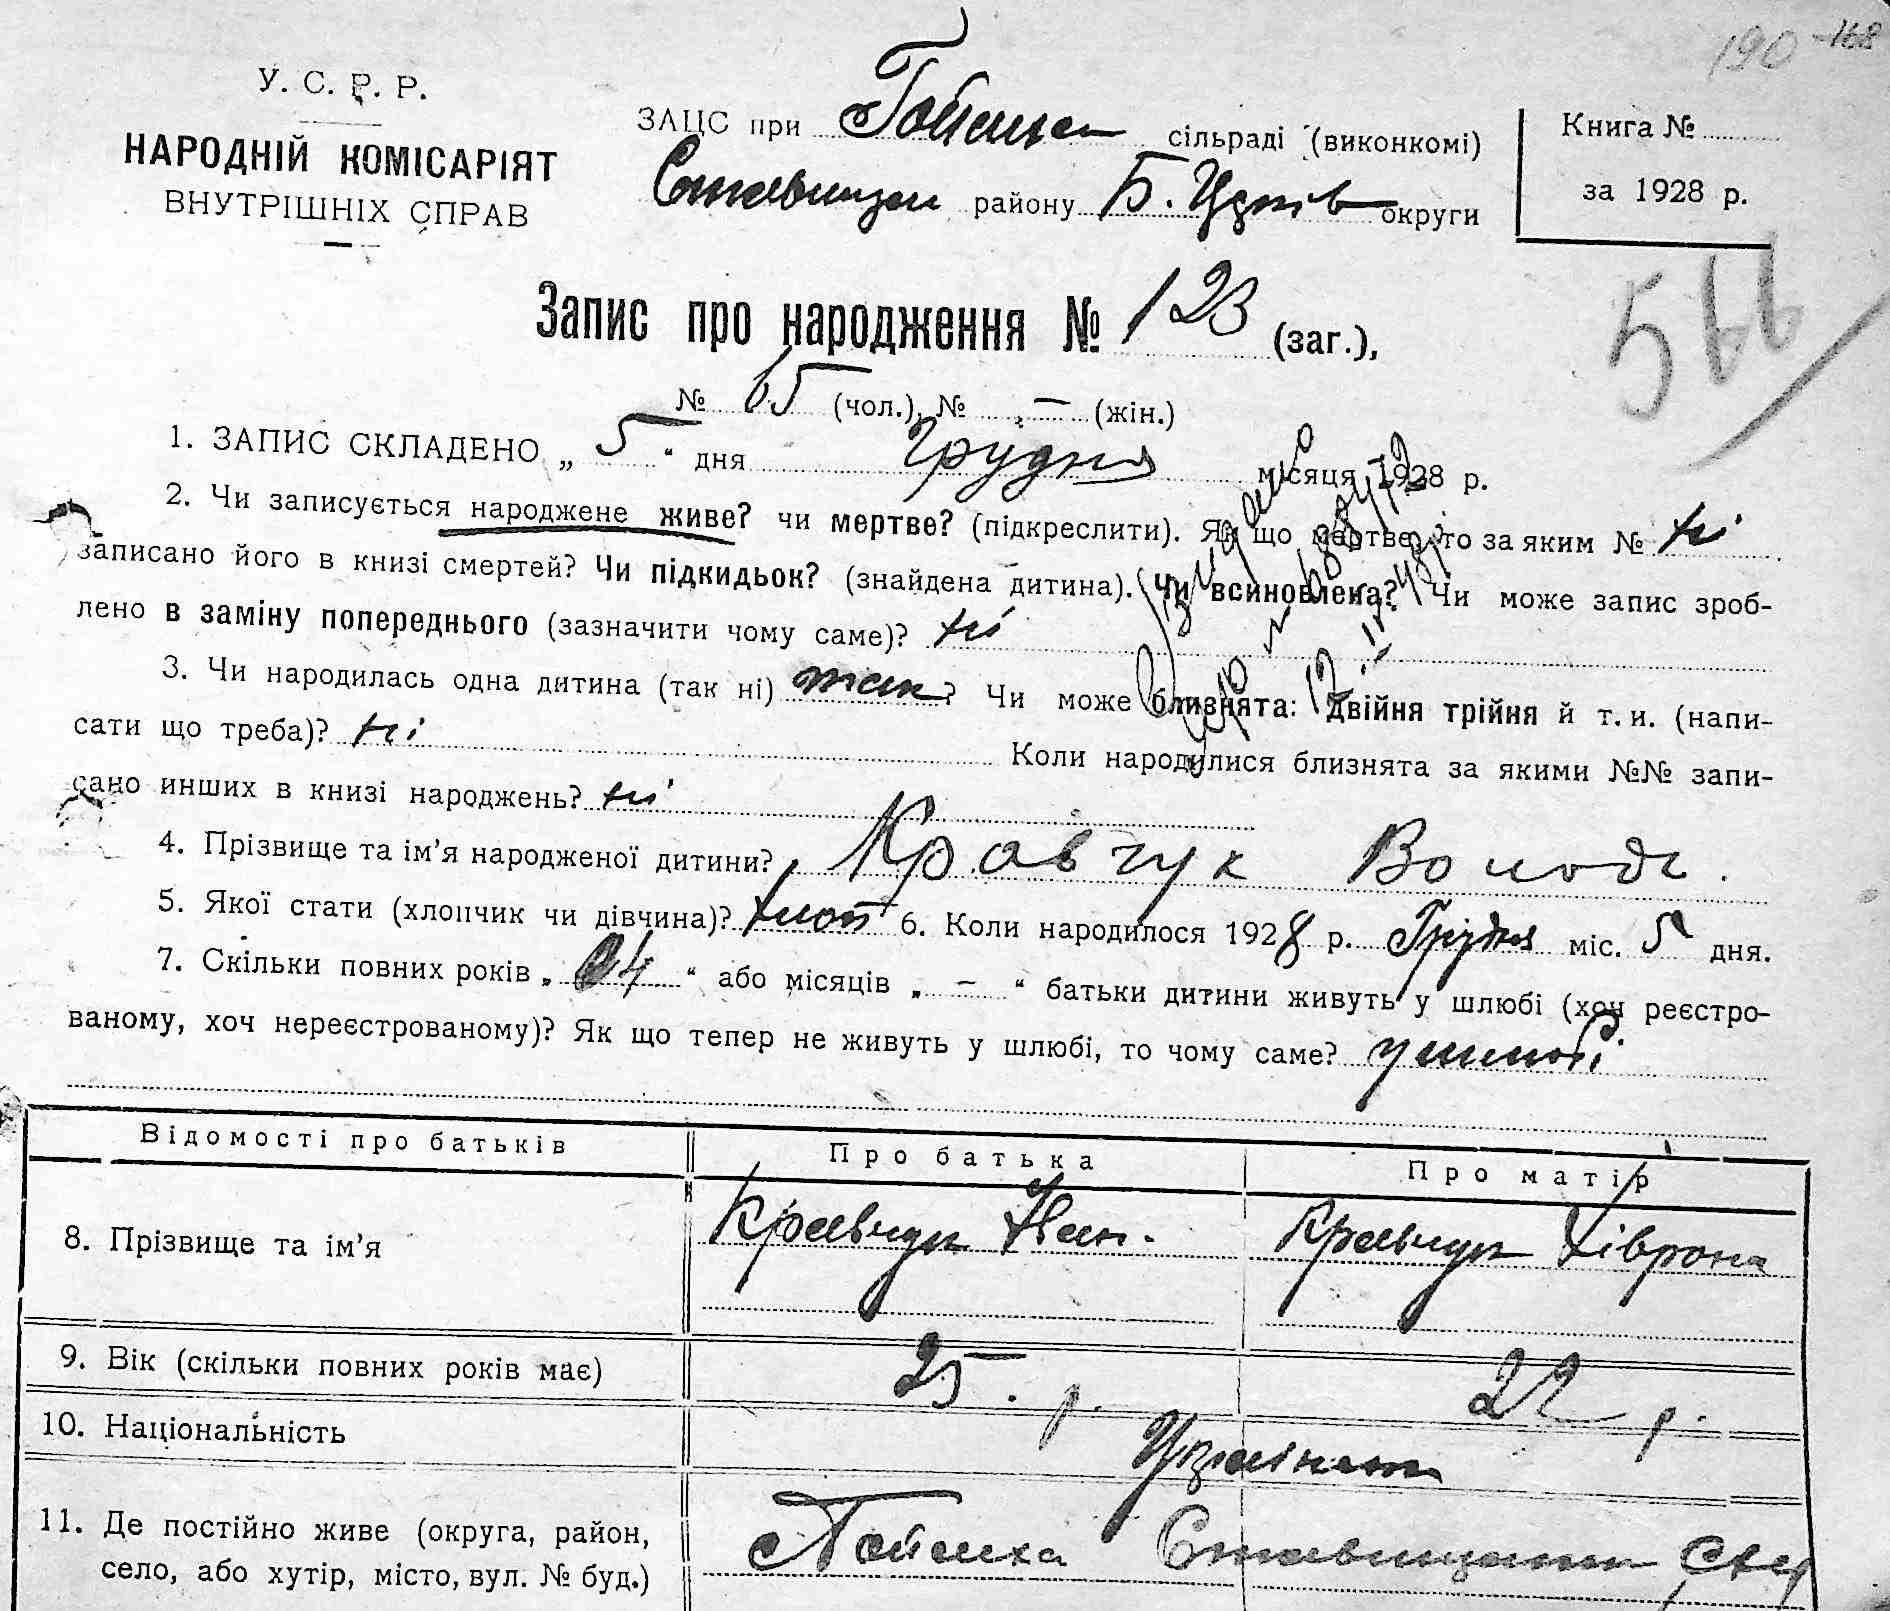 190 -168
У. С. Р. Р.
НАРОДНІЙ КОМІСАРІЯТ
ВНУТРІШНІХ СПРАВ
ЗАЦС при сільраді (виконкомі)
району Б. Церків округи
Книга №
за 1928 р.
566
Запис про народження № 123 (заг.),
№ 65 (чол.), № — (жін.)
1. ЗАПИС СКЛАДЕНО „ 5 “ дня Грудня місяця 1928 р.
2. Чи записується народжене живе? чи мертве? (підкреслити). Як що мертве, то за яким № ні
записано його в книзі смертей? Чи підкидьок? (знайдена дитина). Чи всиновлена? Чи може запис зроб-
лено в заміну попереднього (зазначити чому саме)? ні
3. Чи народилась одна дитина (так ні) так? Чи може близнята: двійня трійня й т. и. (напи-
сати що треба)? ні Коли народилися близнята за якими №№ запи-
сано инших в книзі народжень? ні
4. Прізвище та ім’я народженої дитини? Кравчук Володь.
5. Якої стати (хлопчик чи дівчина)? хлоп 6. Коли народилося 1928 р. Грудня міс. 5 дня.
7. Скільки повних років „ 4 “ або місяців „ — “ батьки дитини живуть у шлюбі (хоч реєстро-
ваному, хоч нереєстрованому)? Як що тепер не живуть у шлюбі, то чому саме? у шлюбі
Відомості про батьків Про батька Про матір
8. Прізвище та ім’я Кравчук Іван. Кравчук Хіврона
9. Вік (скільки повних років має) 25. р. 22 р.
10. Національність
11. Де постійно живе (округа, район,
село, або хутір, місто, вул. № буд.)